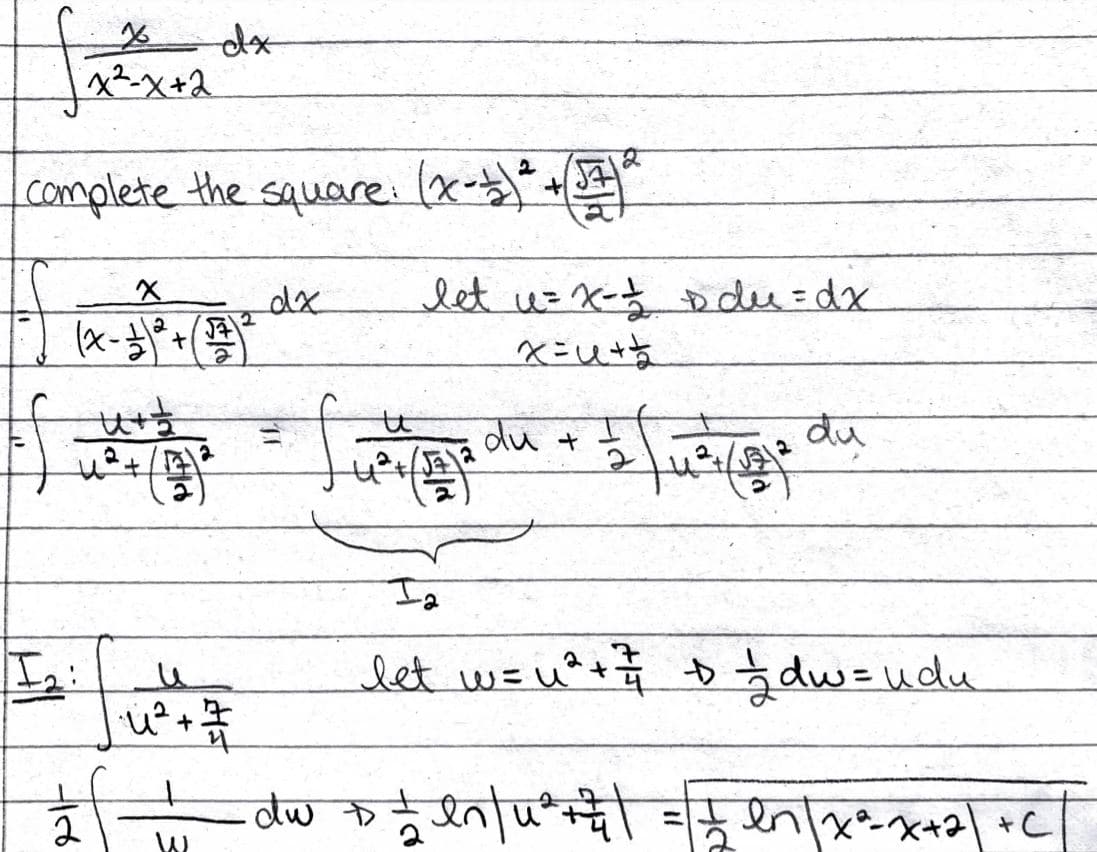 ∫ x/(x²-x+2) dx
complete the square: (x-1/2)² + (√7/2)²
= ∫ x/((x-1/2)² + (√7/2)²) dx let u = x-1/2 ⇒ du = dx
x = u+1/2
= ∫ (u+1/2)/(u² + (√7/2)²) = ∫ u/(u² + (√7/2)²) du + 1/2 ∫ 1/(u² + (√7/2)²) du
I₂
I₂: ∫ u/(u² + 7/4) let w = u² + 7/4 ⇒ 1/2 dw = u du
1/2 ∫ 1/w dw ⇒ 1/2 ln|u² + 7/4| = 1/2 ln|x²-x+2| + C